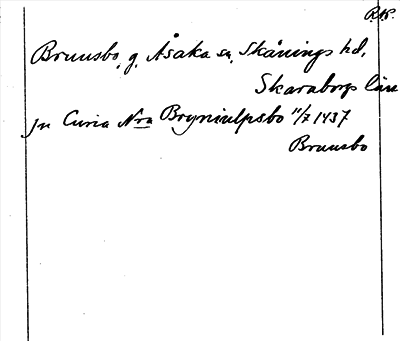 R.A.
Brunsbo, g. Åsaka sn, Skånings hd,
Skaraborgs län
Jn Curia Nra Bryniulpsbo 11/7 1437
Brunsbo